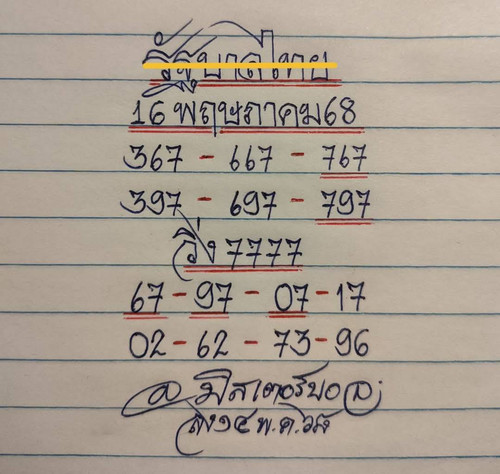 รัฐบาลไทย
16 พฤษภาคม68
367 - 667 - 767
397 - 697 - 797
วิ่ง 7777
67 - 97 - 07 - 17
02 - 62 - 73 - 96
มิสเตอร์บอล
พ.ค.